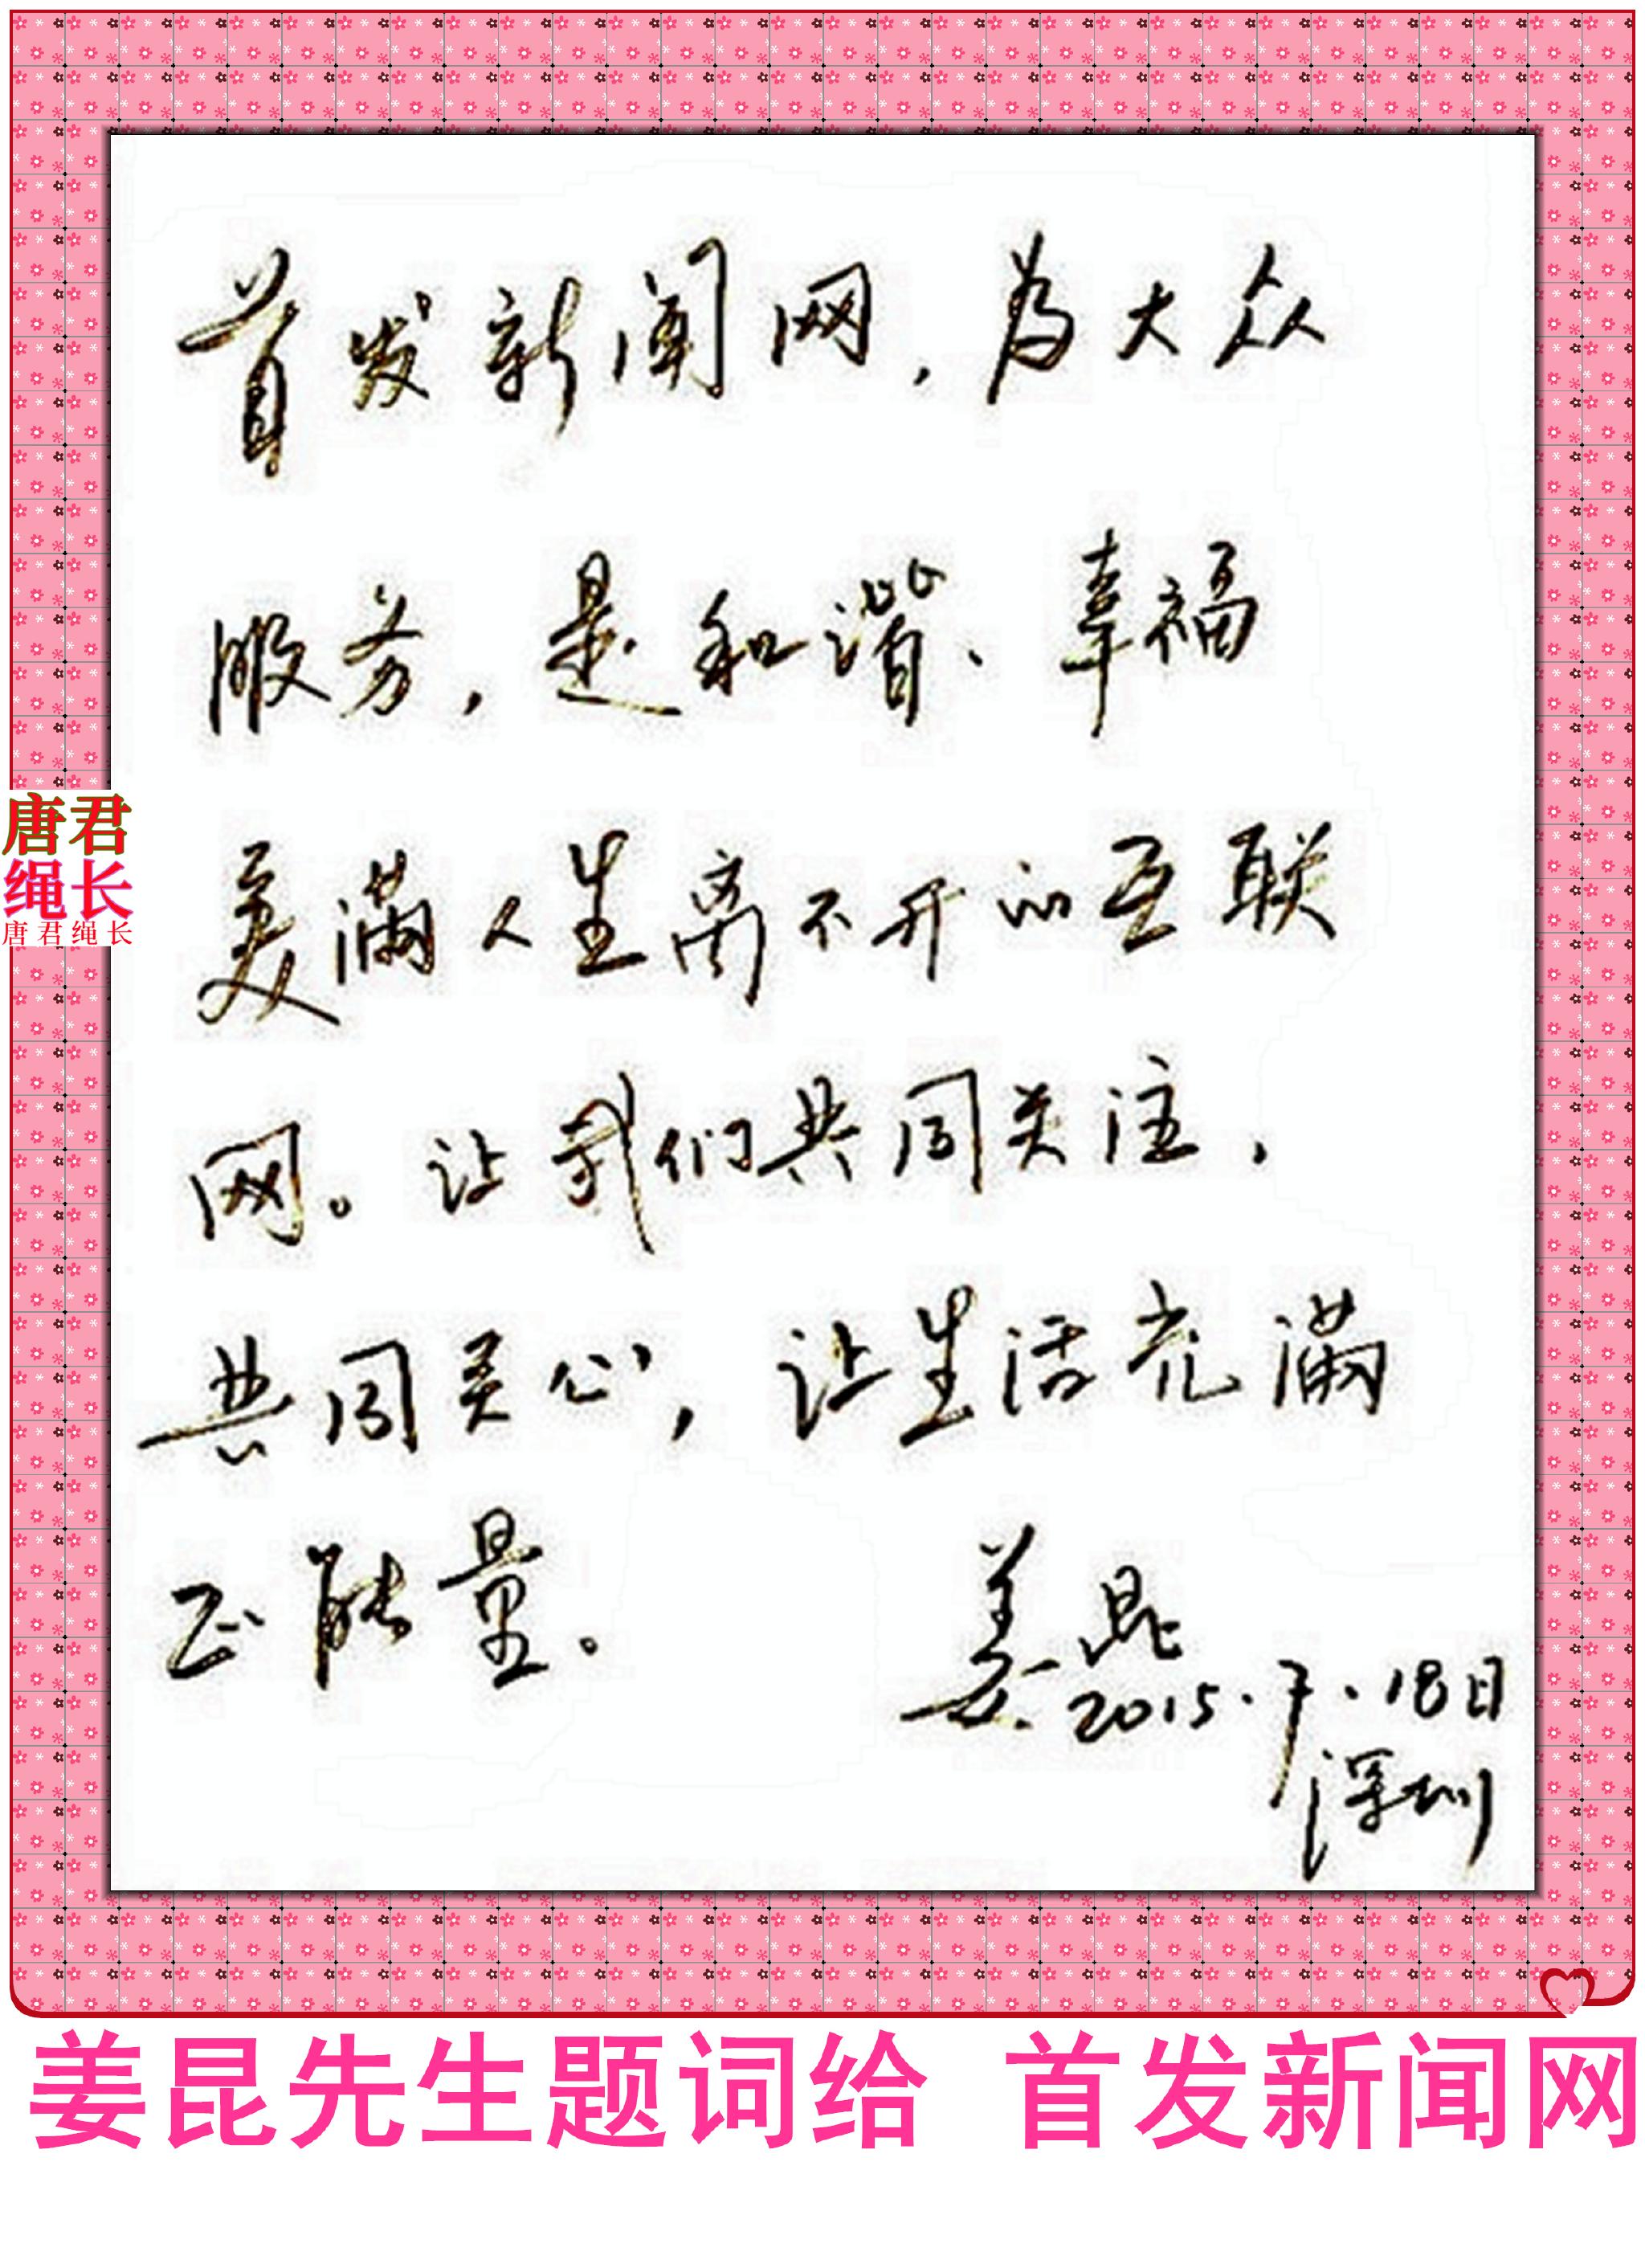 首发新闻网，为大众
服务，是和谐、幸福
美满人生离不开的互联
网。让我们共同关注，
共同关心，让生活充满
正能量。
姜昆
2015.7.18日
深圳
唐君
绳长
唐君绳长
姜昆先生题词给 首发新闻网